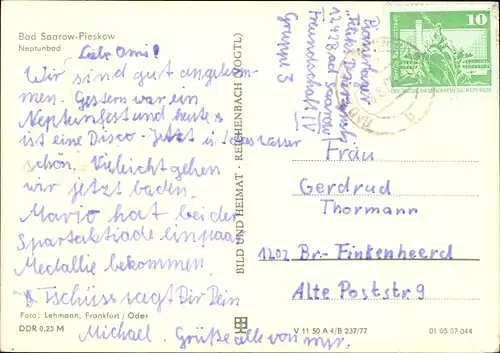 Bad Saarow-Pieskow
Neptunbad
Liebe Omi!
Wir sind gut angekom-
men. Gestern war ein
Neptunfest und heute
ist eine Disco. Jetzt ist das Wasser
schön. Vieleicht gehen
wir jetzt baden.
Mario hat bei der
Spartakiade ein paar
Medallie bekommen.
Tschüss sagt Dir Dein
Michael. Grüße alle von mir.
Foto: Lehmann, Frankfurt/Oder
DDR 0,25 M
BILD UND HEIMAT · REICHENBACH (VOGTL)
V 11 50 A 4/B 237/77
01 05 07 044
Pionierlager
12428 Bad Saarow
Freundschaft IV
Gruppe 3
10
DEUTSCHE DEMOKRATISCHE REPUBLIK
Frau
Gerdrud
Thormann
1202 Br.- Finkenheerd
Alte Poststr 9